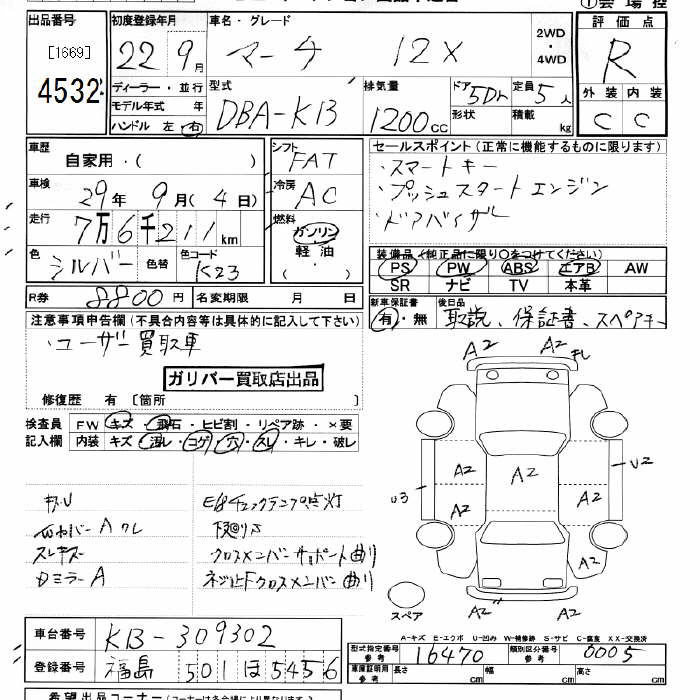 出品番号 初度登録年月 車名・グレード 評価点
[1669] 22 9月 マーチ 12X 2WD ・ 4WD R
4532 ディーラー・並行 型式 排気量 ドア 5Dr 定員 5人 外装 内装
モデル年式 年 DBA-K13 1200cc 形状 積載 kg C C
ハンドル 左・右
車歴 自家用・( ) シフト FAT セールスポイント(正常に機能するものに限ります)
車検 29年 9月(4日) 冷房 AC ・スマートキー
走行 7万6千211km 燃料 ガソリン ・プッシュスタートエンジン
軽油 ・ドアバイザー
色 シルバー 色替 色コード K23 ・( )
装備品(純正品に限り○をつけてください)
PS PW ABS エアB AW
SR ナビ TV 本革
R券 8800円 名変期限 月 日 新車保証書 有・無 後日品 取説、保証書、スペアキー
注意事項申告欄(不具合内容等は具体的に記入して下さい)
・ユーザー買取車
ガリバー買取店出品
修復歴 有〔箇所
検査員 FW キズ・飛石・ヒビ割・リペア跡・×要
記入欄 内装 キズ・汚レ・コゲ・穴・スレ・キレ・破レ
キズU E/gチェックランプ点灯
スレキズ クロスメンバーサポート曲り
ロミラーA クロスメンバー曲り
A2 A2
A2 A2 A2 A2 A2
U3 U2
A2 A2 A2
スペア
A-キズ E-エクボ U-凹み W-補修跡 S-サビ C-腐食 XX-交換済
車台番号 K13-309302 型式指定番号 参考 16470 類別区分番号 参考 0005
登録番号 福島 501 ほ 5456 車庫証明用 参考 長さ 幅 高さ
希望出品コーナー